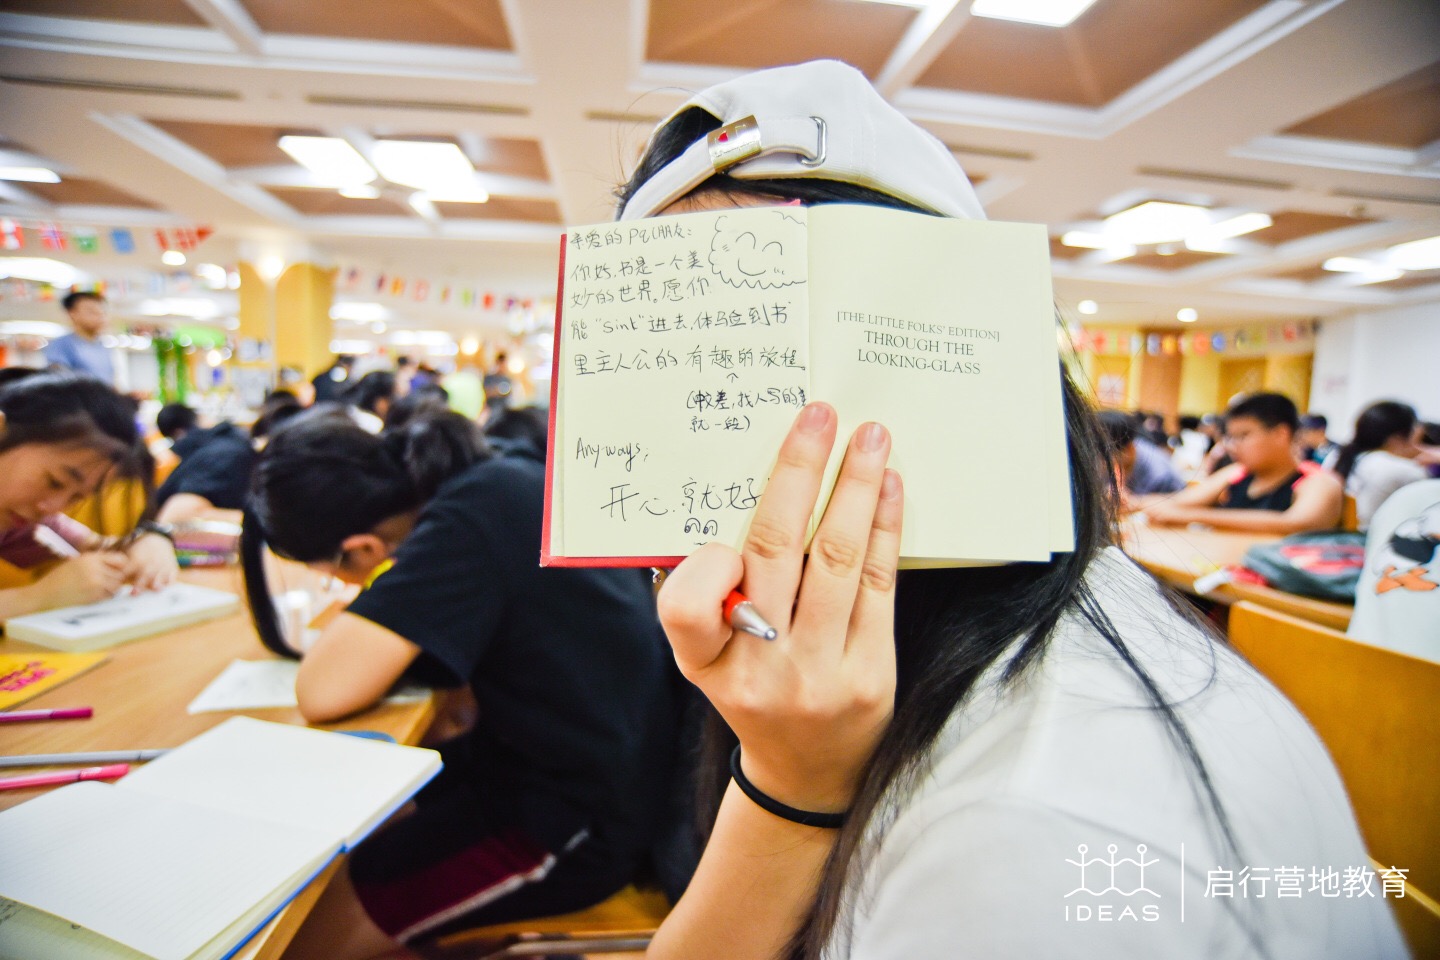 亲爱的pql朋友:
你好,书是一个美
妙的世界。愿你
能“sink”进去,体验到书
里主人公的有趣的旅程
(中较差,找人写的美
就一段)
Any-ways,
开心.就好
[THE LITTLE FOLKS' EDITION]
THROUGH THE
LOOKING-GLASS
IDEAS
启行营地教育